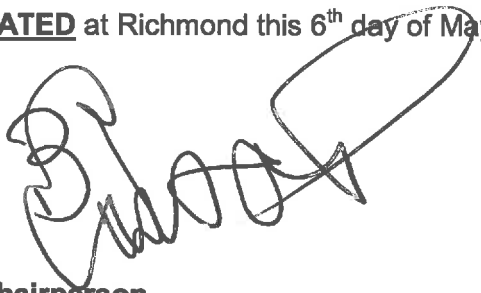 ATED at Richmond this 6th day of Ma
hairperson